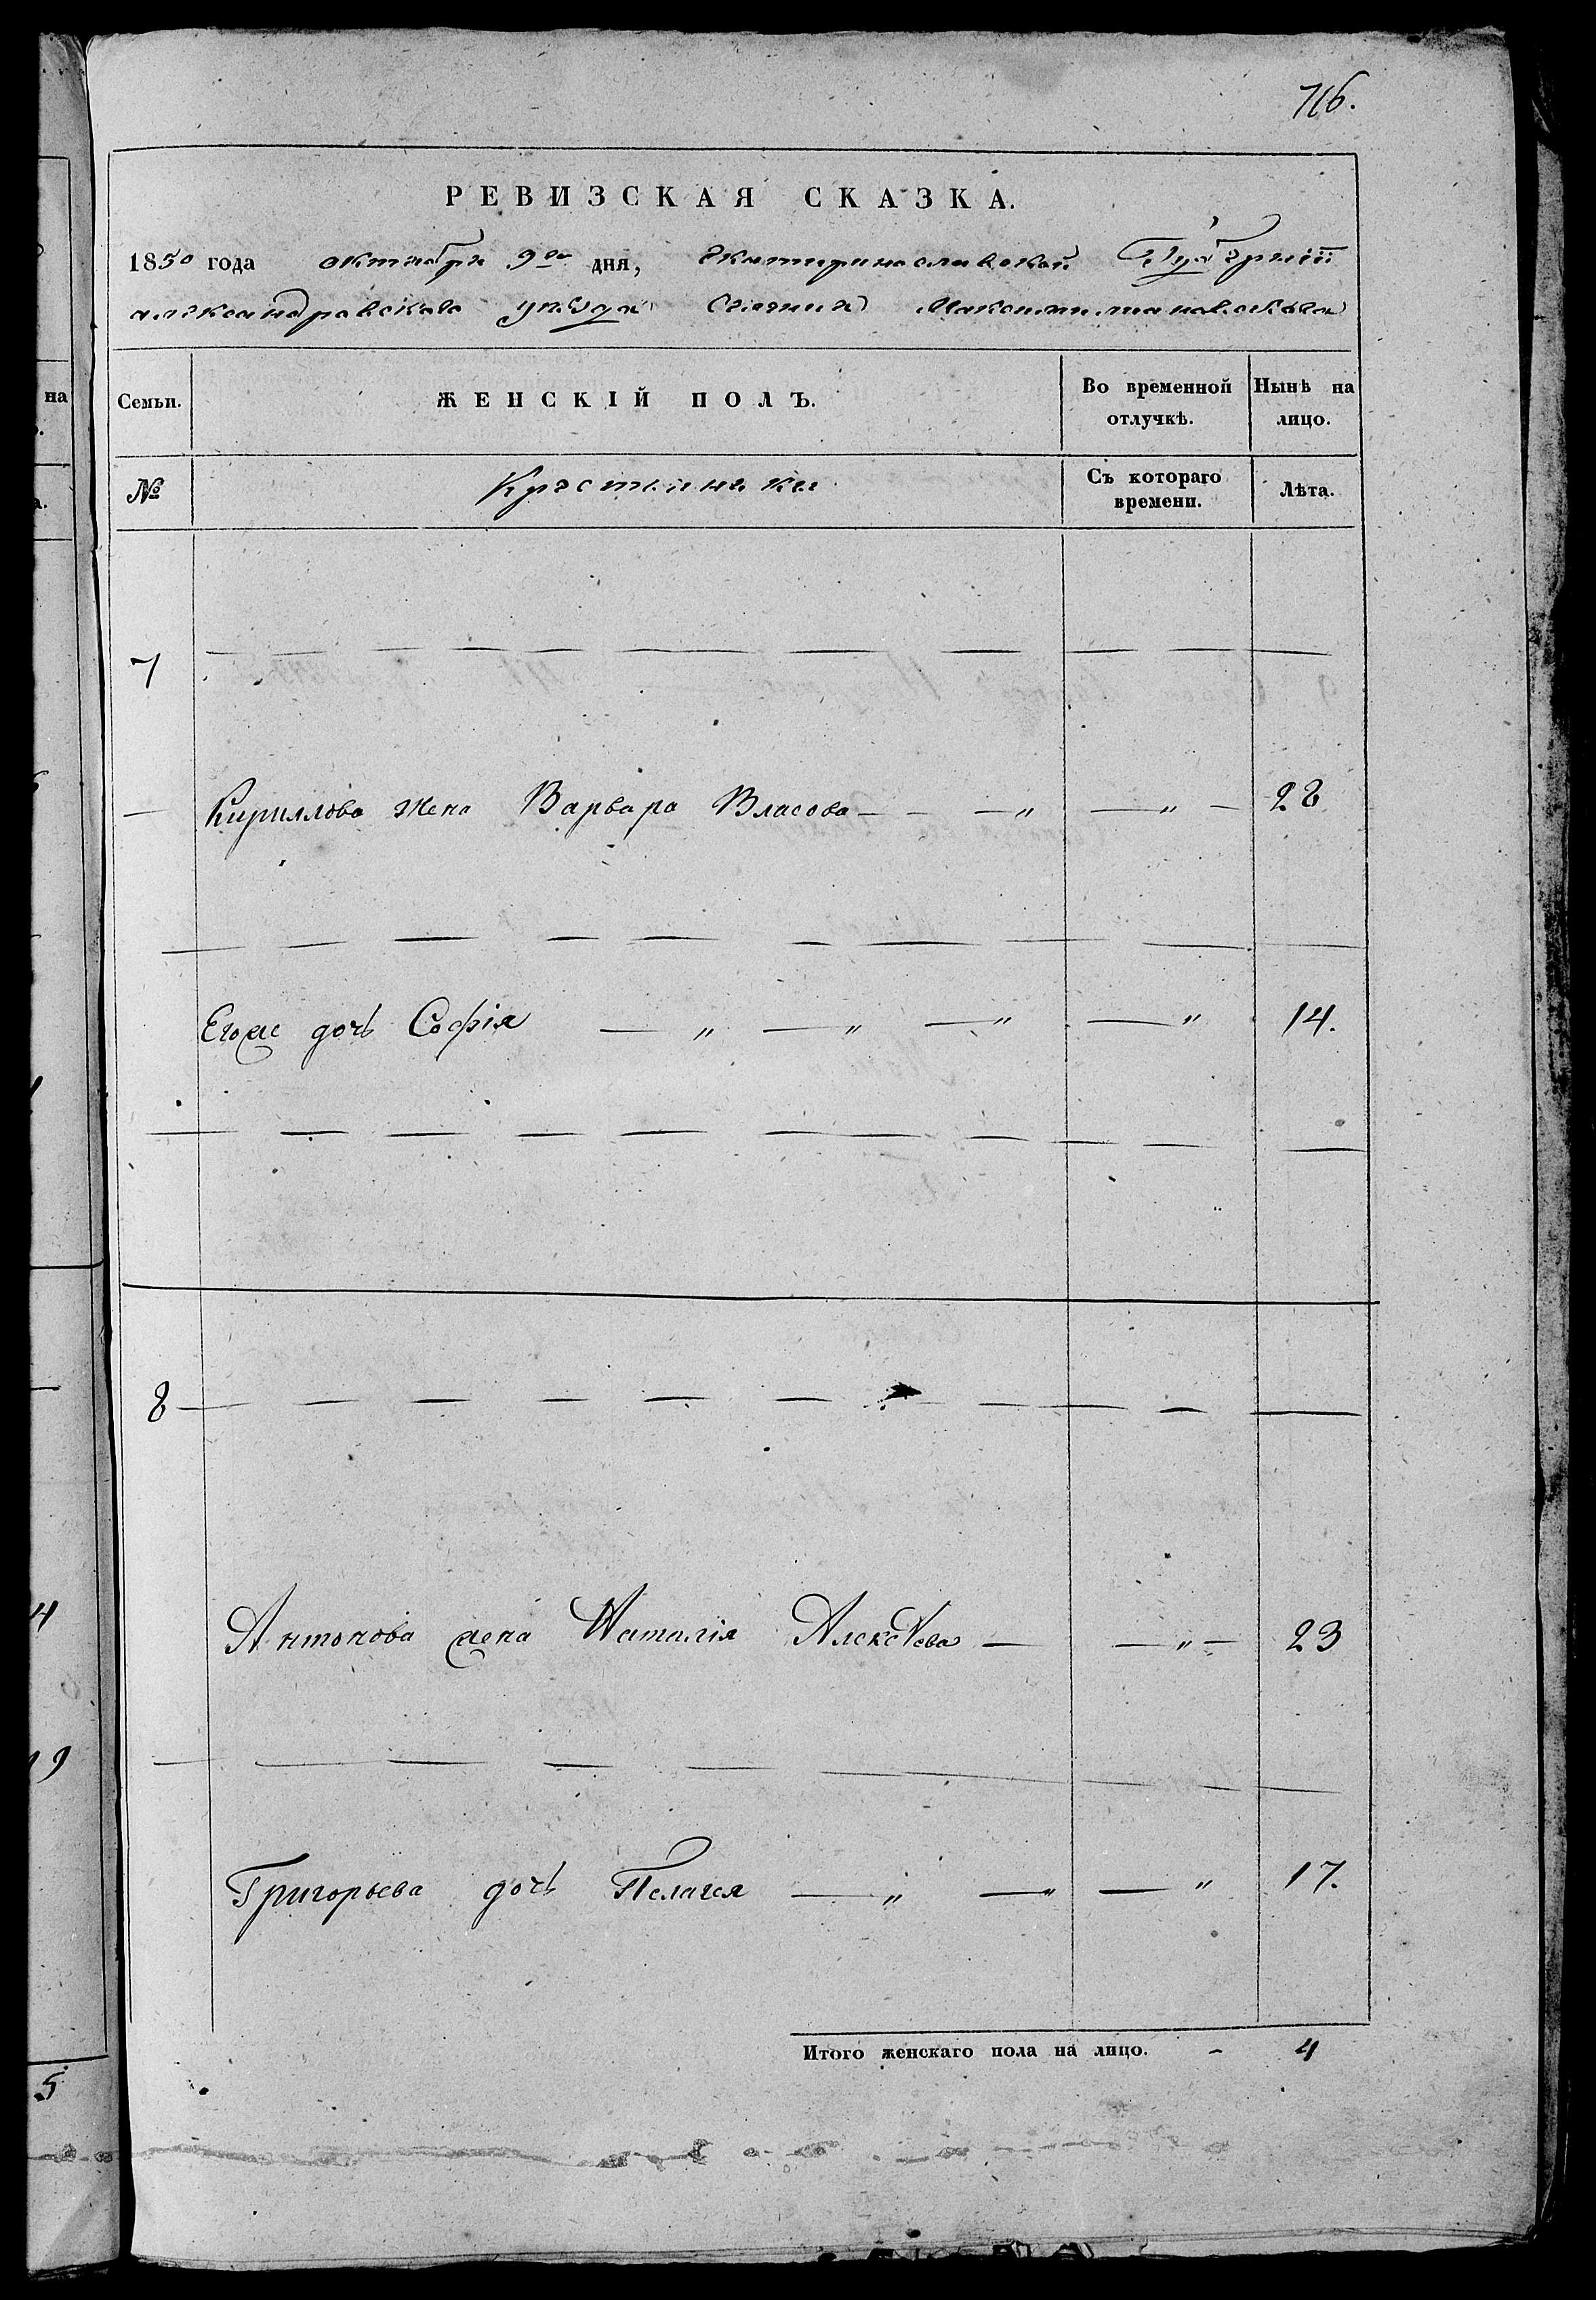 716.
РЕВИЗСКАЯ СКАЗКА.
1850 года октября 9го дня, Екатеринославской Губернии
александровского уезда
Семьи. ЖЕНСКІЙ ПОЛЪ. Во временной отлучкѣ. Нынѣ на лицо.
№ Крестьянки Съ котораго времени. Лѣта.
7
Кириллова жена Варвара Власова — — —„ —„ — 28
Егоже дочь София —„ —„ —„ —„ 14.
8
Антонова жена Наталія — —„— 23
Григорьева дочь Пелагея —„ —„ —„ 17.
Итого женскаго пола на лицо. - 4
на
4
19
5